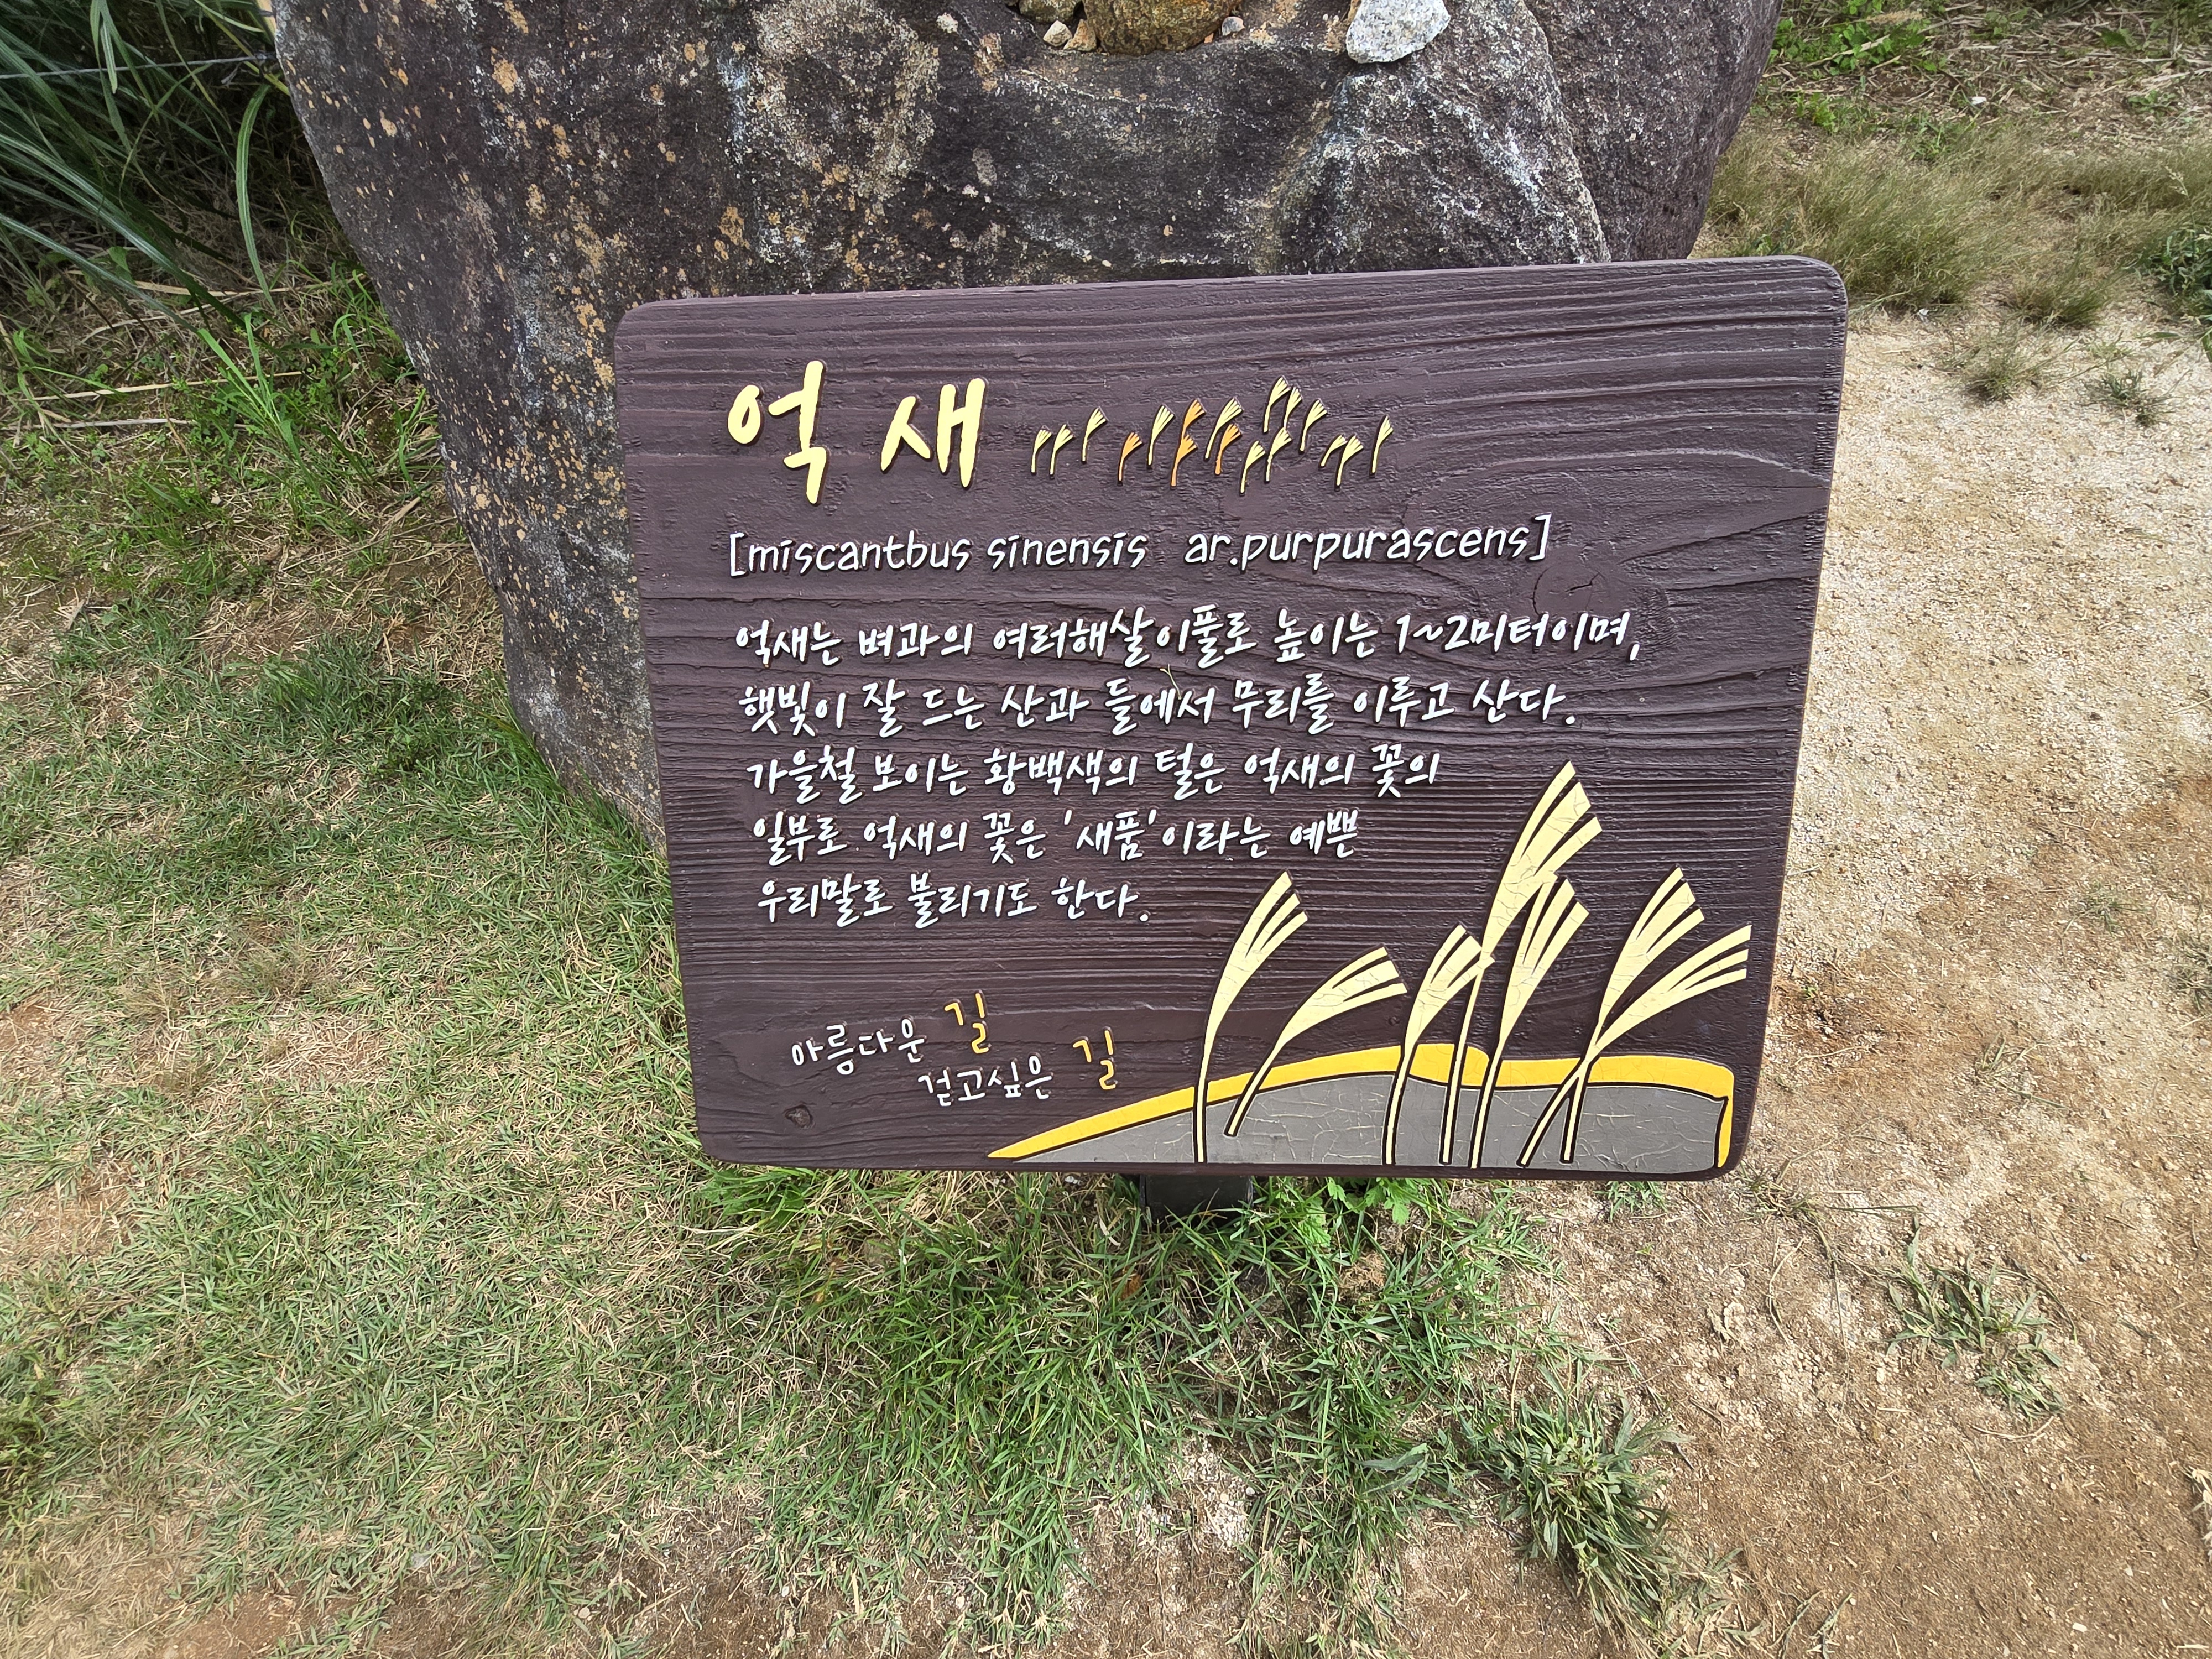 억새
[miscantbus sinensis ar.purpurascens]
억새는 벼과의 여러해살이풀로 높이는 1~2미터이며,
햇빛이 잘 드는 산과 들에서 무리를 이루고 산다.
가을철 보이는 황백색의 털은 억새의 꽃의
일부로 억새의 꽃은 '새품'이라는 예쁜
우리말로 불리기도 한다.
아름다운 길
걷고싶은 길